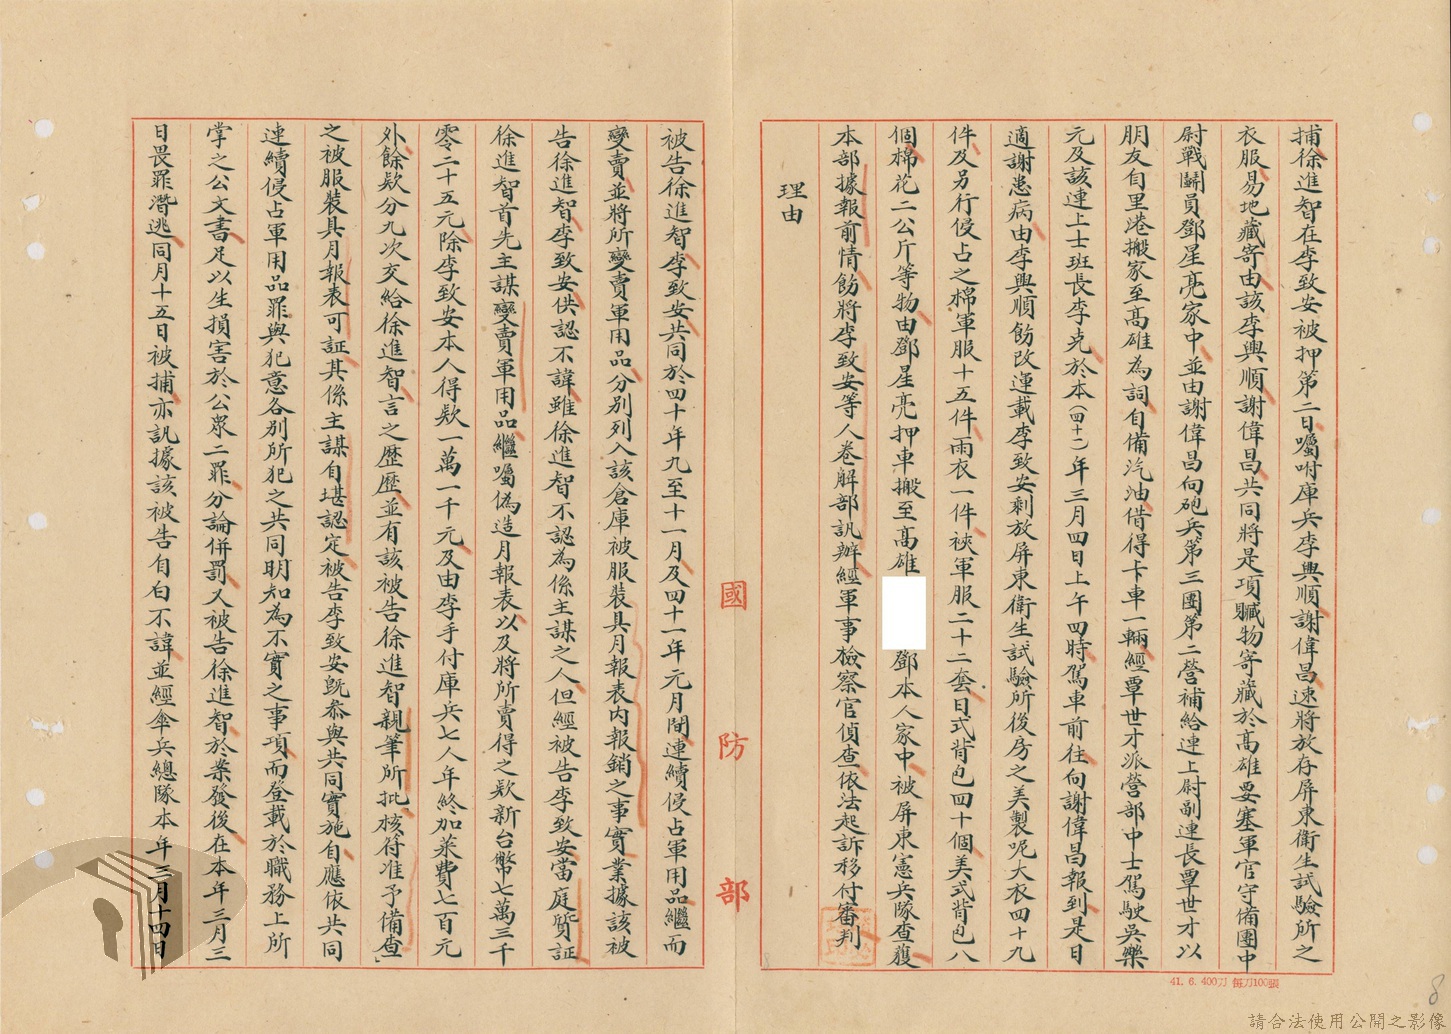 捕徐進智在李致安被押第二日囑咐庫兵李興順謝偉昌速將放存屏東衛生試驗所之
衣服易地藏寄由該李興順謝偉昌共同將是項贓物寄藏於高雄要塞軍官守備團中
尉戰鬭員鄧星亮家中並由謝偉昌向砲兵第三團第二營補給連上尉副連長覃世才以
朋友自里港搬家至高雄為詞自備汽油借得卡車一輛經覃世才派營部中士駕駛吳樂
元及該連上士班長李克於本（四十一）年三月四日上午四時駕車前往向謝偉昌報到是日
適謝患病由李興順飭改運載李致安剩放屏東衛生試驗所後房之美製呢大衣四十九
件及另行侵占之棉軍服十五件雨衣一件裌軍服二十二套日式背包四十個美式背包八
個棉花二公斤等物由鄧星亮押車搬至高雄
鄧本人家中被屏東憲兵隊查獲
本部據報前情飭將李致安等人卷解部訊辦經軍事檢察官偵查依法起訴移付審判
理由
被告徐進智李致安共同於四十年九至十一月及四十一年元月間連續侵占軍用品繼而
變賣並將所變賣軍用品分別列入該倉庫被服裝具月報表內報銷之事實業據該被
告徐進智李致安供認不諱雖徐進智不認為係主謀之人但經被告李致安當庭質証
徐進智首先主謀變賣軍用品繼囑偽造月報表以及將所賣得之款新台幣七萬三千
零二十五元除李致安本人得款一萬一千元及由李手付庫兵七人年終加菜費七百元
外餘款分九次交給徐進智言之歷歷並有該被告徐進智親筆所批核符准予備查
之被服裝具月報表可証其係主謀自堪認定被告李致安既參與共同實施自應依共同
連續侵占軍用品罪與犯意各別所犯之共同明知為不實之事項而登載於職務上所
掌之公文書足以生損害於公眾二罪分論併罰又被告徐進智於案發後在本年三月三
日畏罪潛逃同月十五日被捕亦訊據該被告自白不諱並經傘兵總隊本年三月十四日
國防部
41. 6. 400刀 每刀100張
8
請合法使用公開之影像